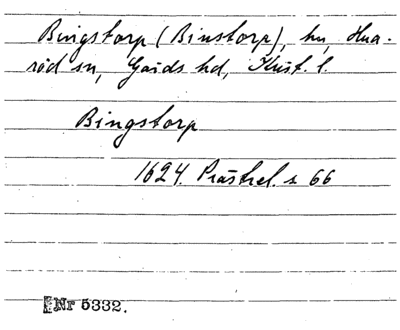 Bingstorp (Binstorp), hn, Hua-
röd sn, Gärds hd, Krist. l.
Bingstorp
1624. Prästrel. s 66
Nr 5332.